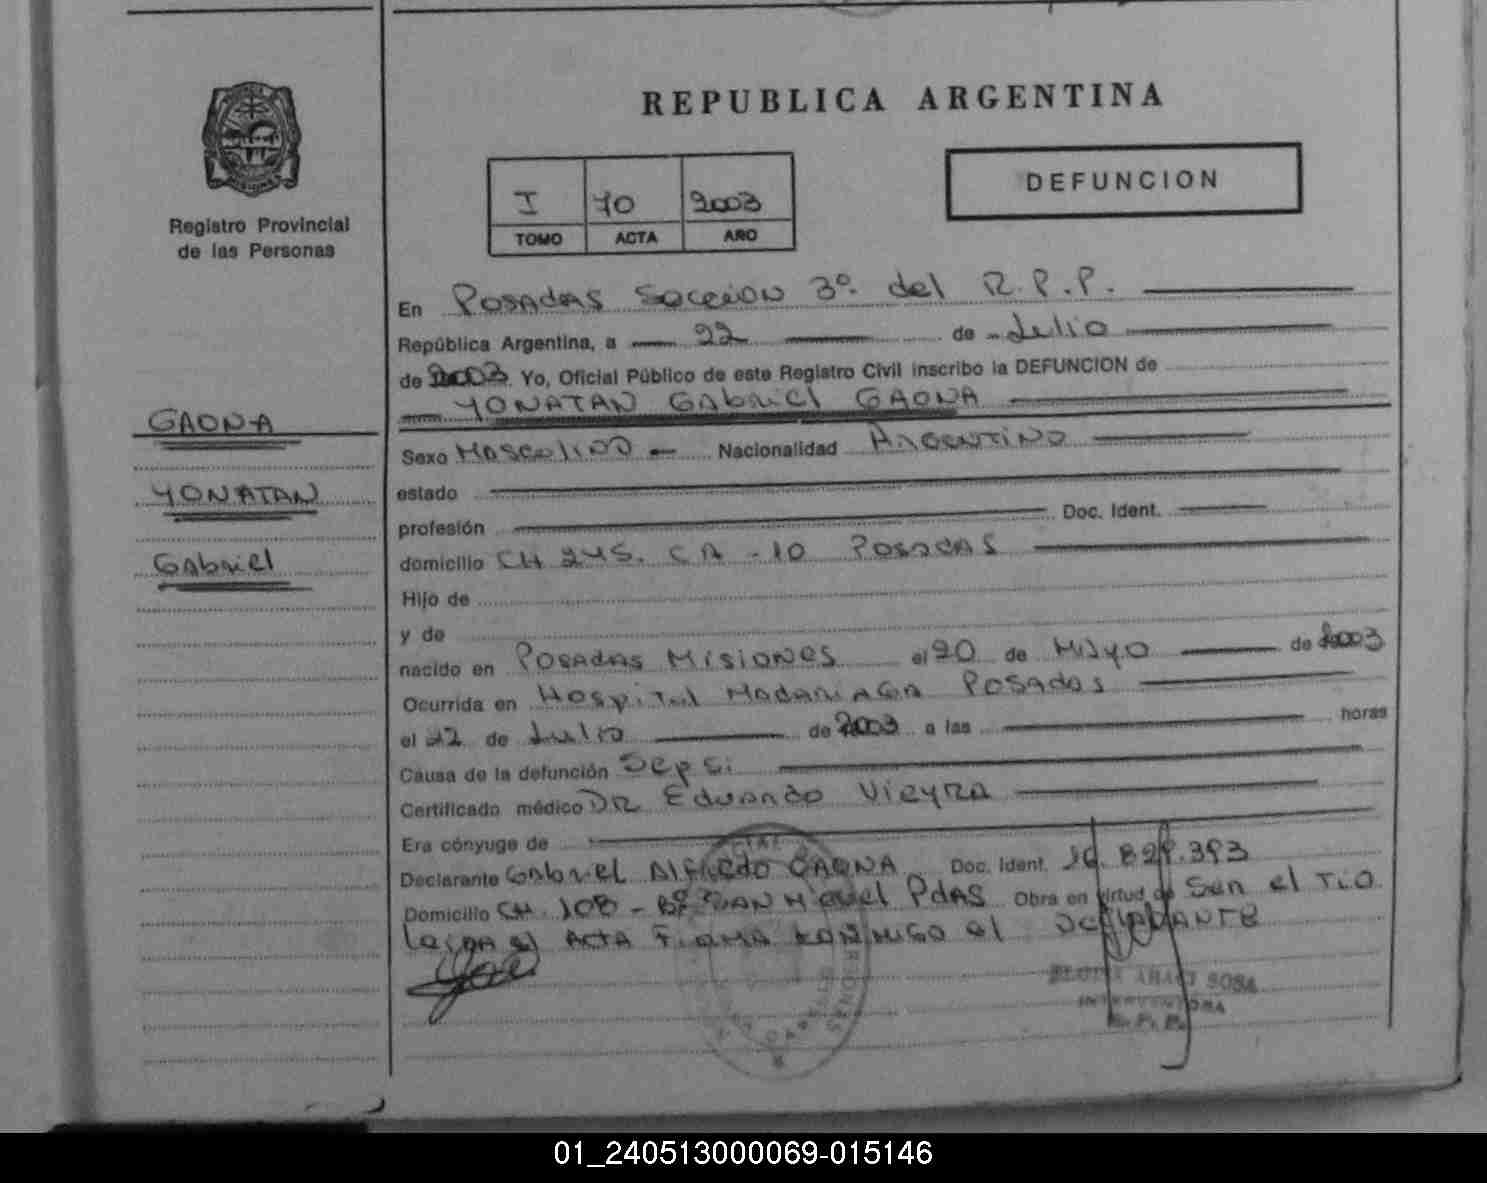 REPUBLICA ARGENTINA
DEFUNCION
I 70 2003
TOMO ACTA AÑO
Registro Provincial
de las Personas
GAONA
YONATAN
Gabriel
En Posadas Seccion 3º del R.P.P.
República Argentina, a 22 de Julio
de 2003. Yo, Oficial Público de este Registro Civil inscribo la DEFUNCION de
YONATAN Gabriel GAONA
Sexo Masculino Nacionalidad Argentino
estado
profesión Doc. Ident.
domicilio CH 245. CA - 10 Posadas
Hijo de
y de
nacido en Posadas Misiones el 20 de Mayo de 2003
Ocurrida en Hospital Madariaga Posadas
el 22 de Julio de 2003 a las horas
Causa de la defunción Sepsi
Certificado médico DR Eduardo Vieyra
Era cónyuge de
Declarante Gabriel Alfredo GAONA Doc. Ident. 828.393
Domicilio CH. 108 - Bº SAN Miguel Pdas Obra en virtud de Ser el Tio
el ACTA Firma conmigo el Declarante
ARACI SOSA
INTERVENTORA
R. P. P.
01_240513000069-015146